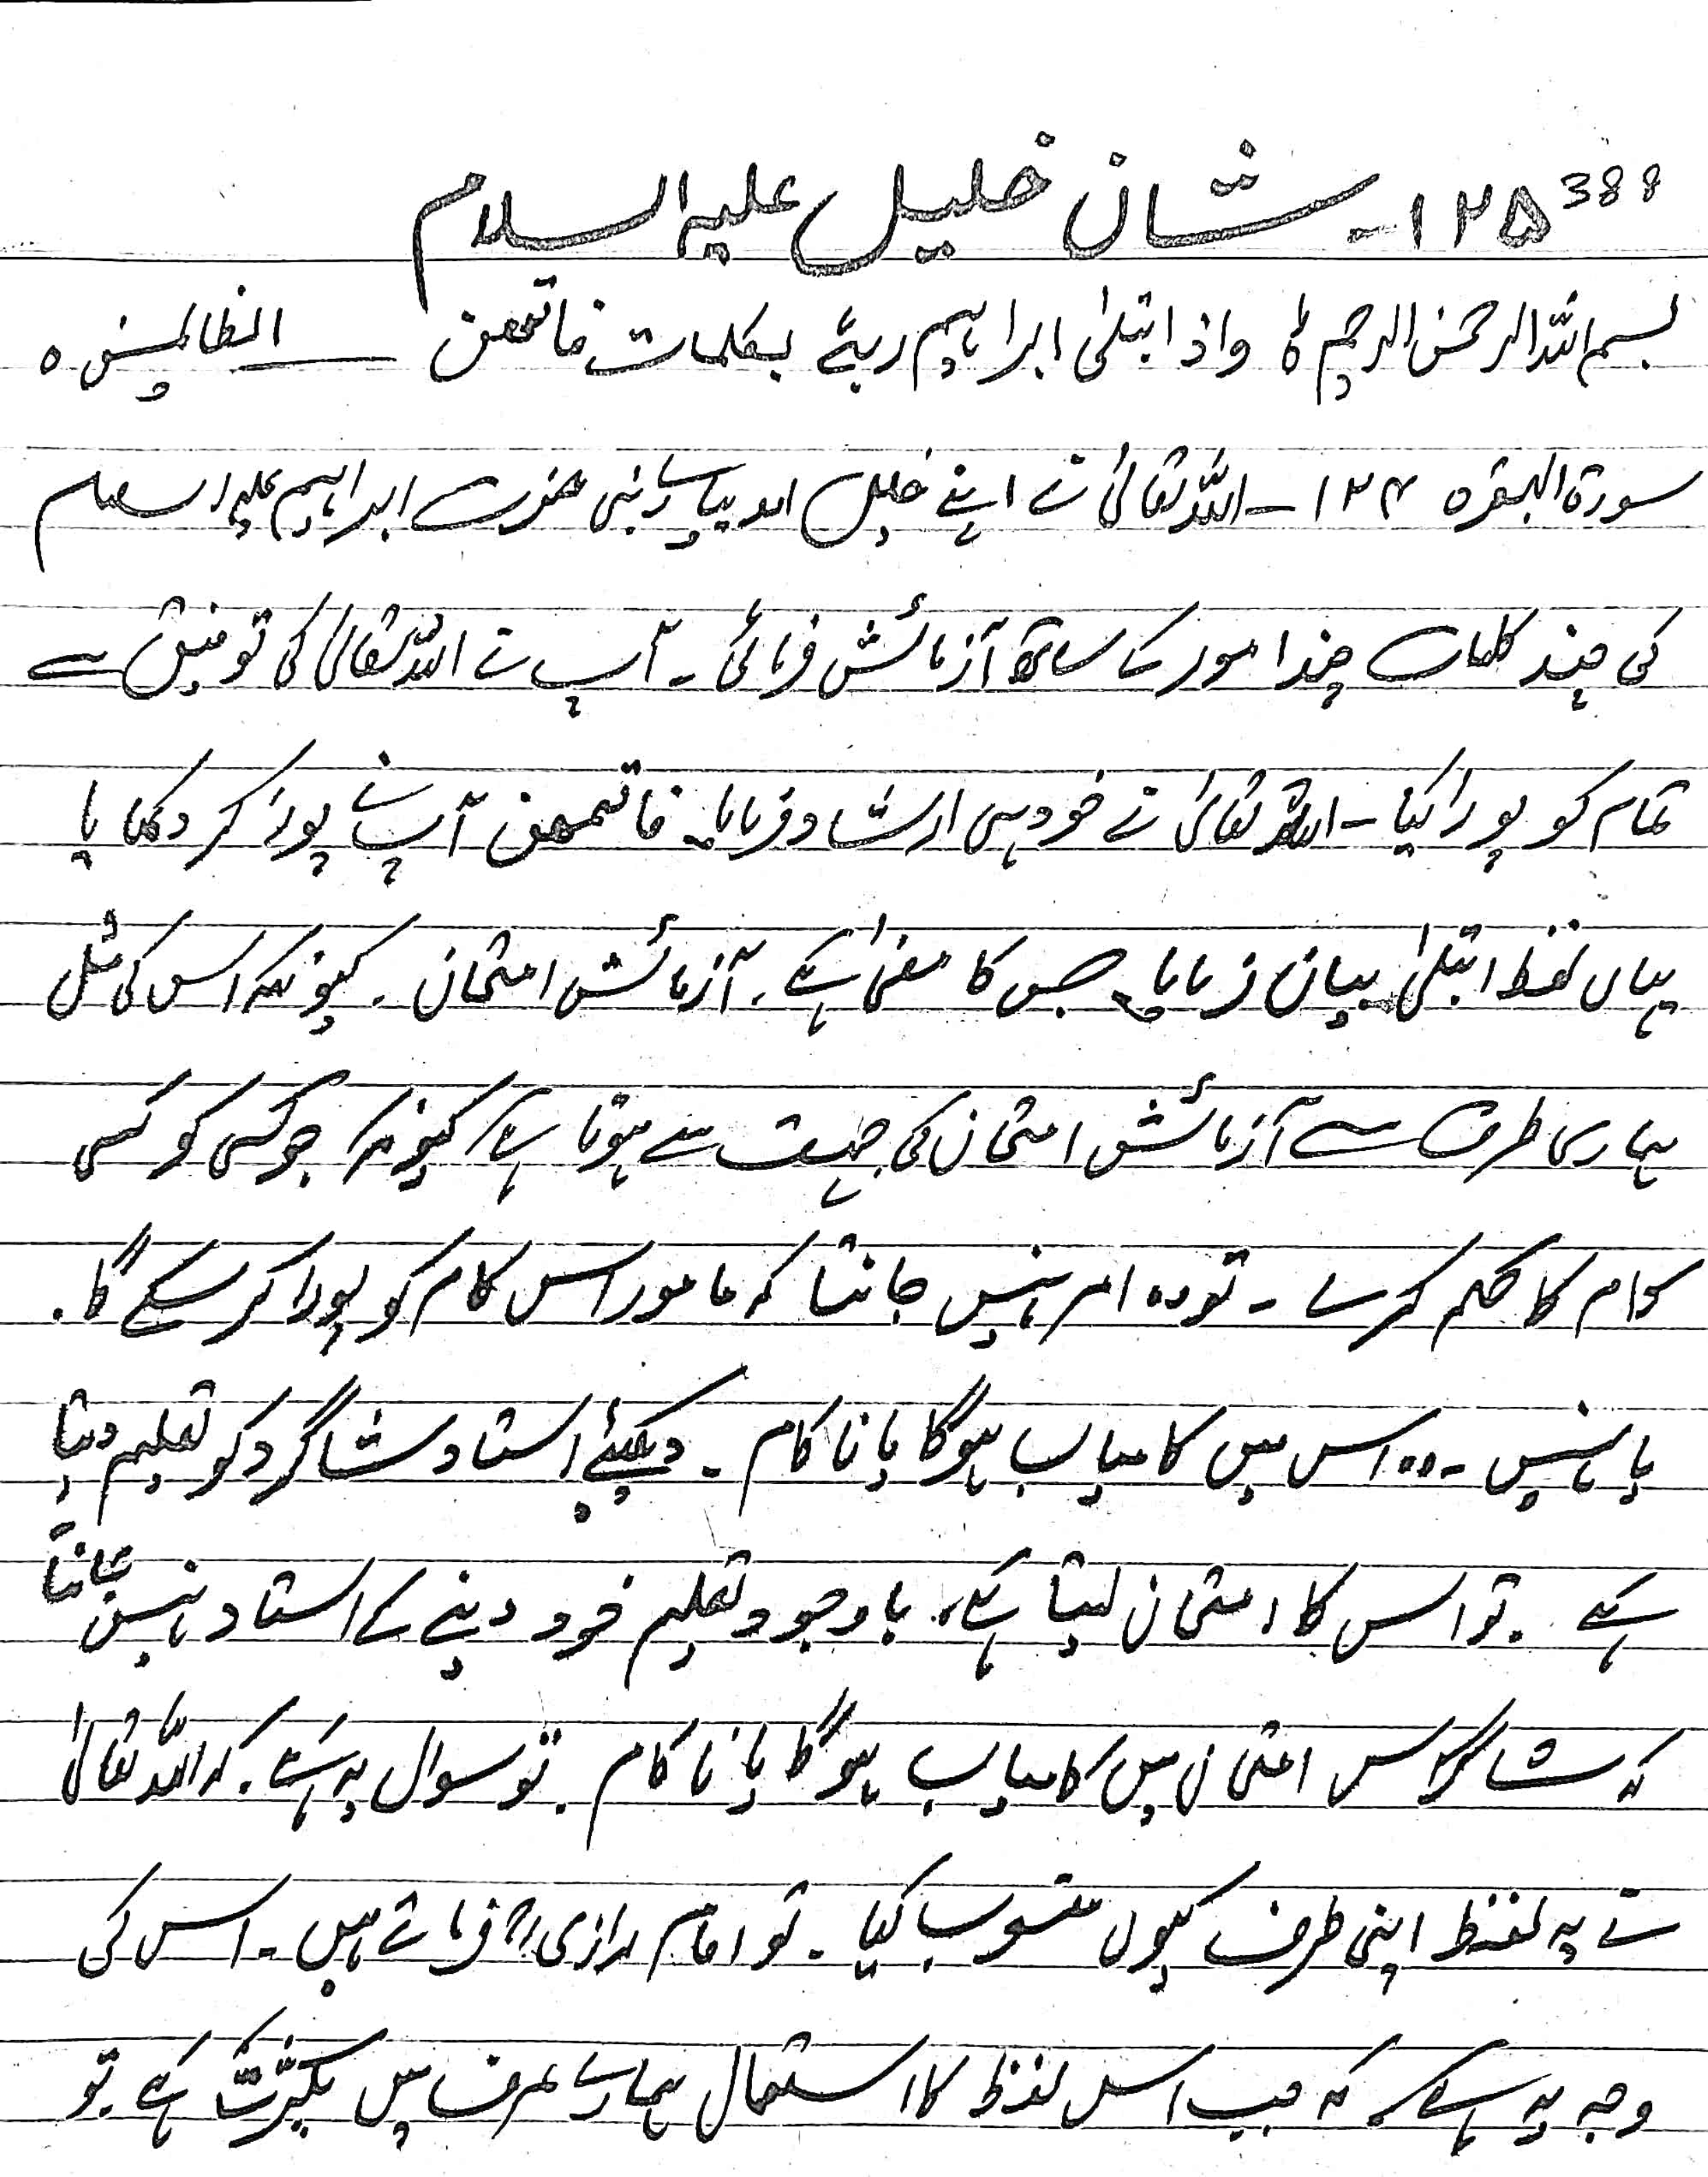 388
۱۲۵- شان خلیل علیہ السلام
بسم اللہ الرحمٰن الرحیم ط واذ ابتلیٰ ابراہیم ربہٗ بکلمات فاتمھن ــــــ الظالمین ہ
سورۃ البقرہ ۱۲۴ - اللہ تعالیٰ نے اپنے خلیل اور پیارے نبی حضرت ابراہیم علیہ السلام
کی چند کلمات چند امور کے ساتھ آزمائش فرمائی - آپ نے اللہ تعالیٰ کی توفیق سے
تمام کو پورا کیا - اللہ تعالیٰ نے خود ہی ارشاد فرمایا۔ فاتمھن آپ نے پورا کر دکھایا
یہاں لفظ ابتلیٰ بیان فرمایا۔ جس کا معنیٰ ہے۔ آزمائش امتحان ۔ کیونکہ اس کی مثل
ہماری طرف سے آزمائش امتحان کی جہت سے ہوتا ہے، کیونکہ جو کسی کو کسی
کام کا حکم کرے - تو وہ امر نہیں جانتا کہ مامور اس کام کو پورا کر سکے گا ۔
یا نہیں - وہ اس میں کامیاب ہوگا یا ناکام - دیکھئے استاد شاگرد کو تعلیم دیتا
ہے ۔ تو اس کا امتحان لیتا ہے، باوجود تعلیم خود دینے کے استاد نہیں جانتا
کہ شاگرد اس امتحان میں کامیاب ہوگا یا ناکام ۔ تو سوال یہ ہے ۔ کہ اللہ تعالیٰ
نے یہ لفظ اپنی طرف کیوں منسوب کیا ۔ تو امام رازیؒ فرماتے ہیں - اس کی
وجہ یہ ہے کہ جب اس لفظ کا استعمال ہمارے عرف میں بکثرت ہے تو